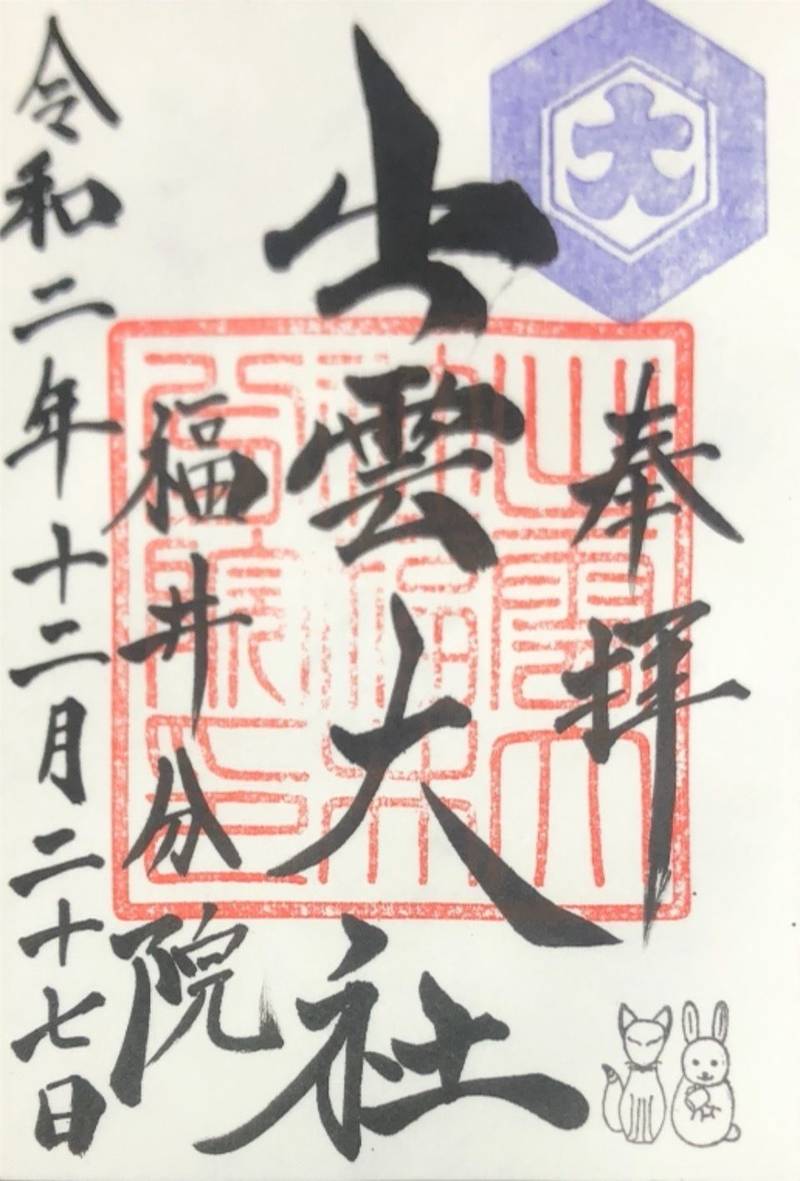 奉拝
出雲大社
福井分院
令和二年十二月二十七日
大